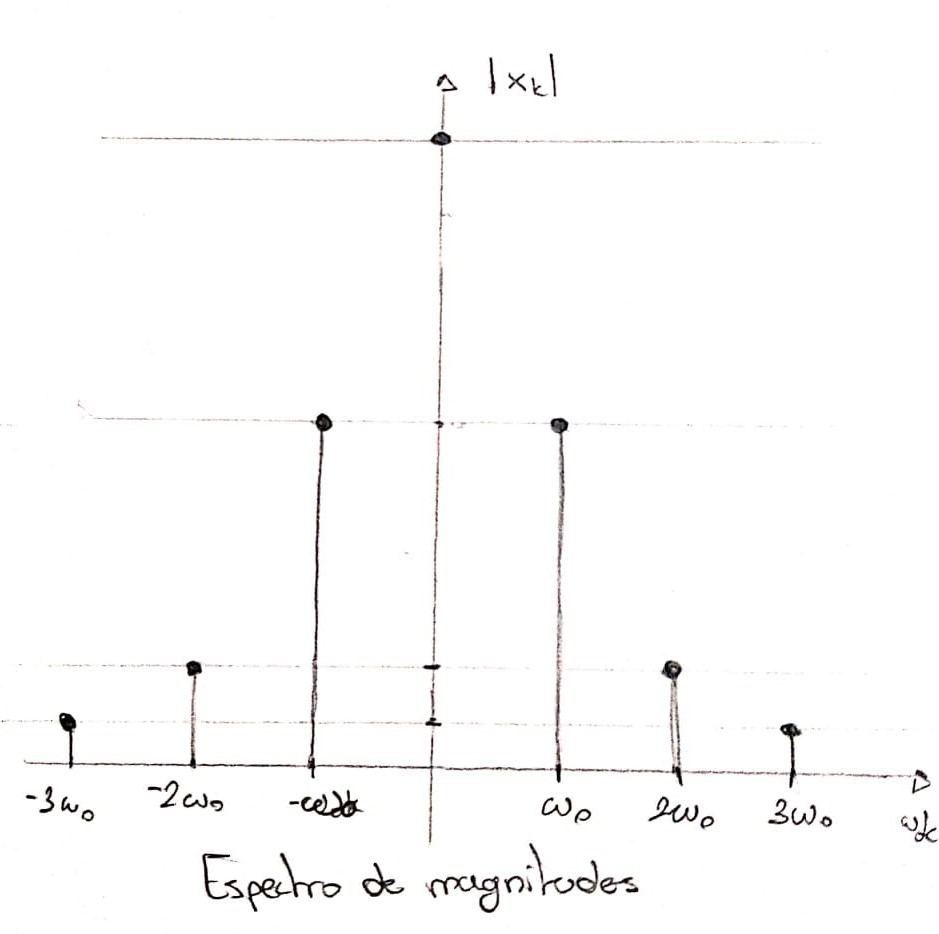 |x_k|
-3ω₀ -2ω₀ ω₀ 2ω₀ 3ω₀
Espectro de magnitudes